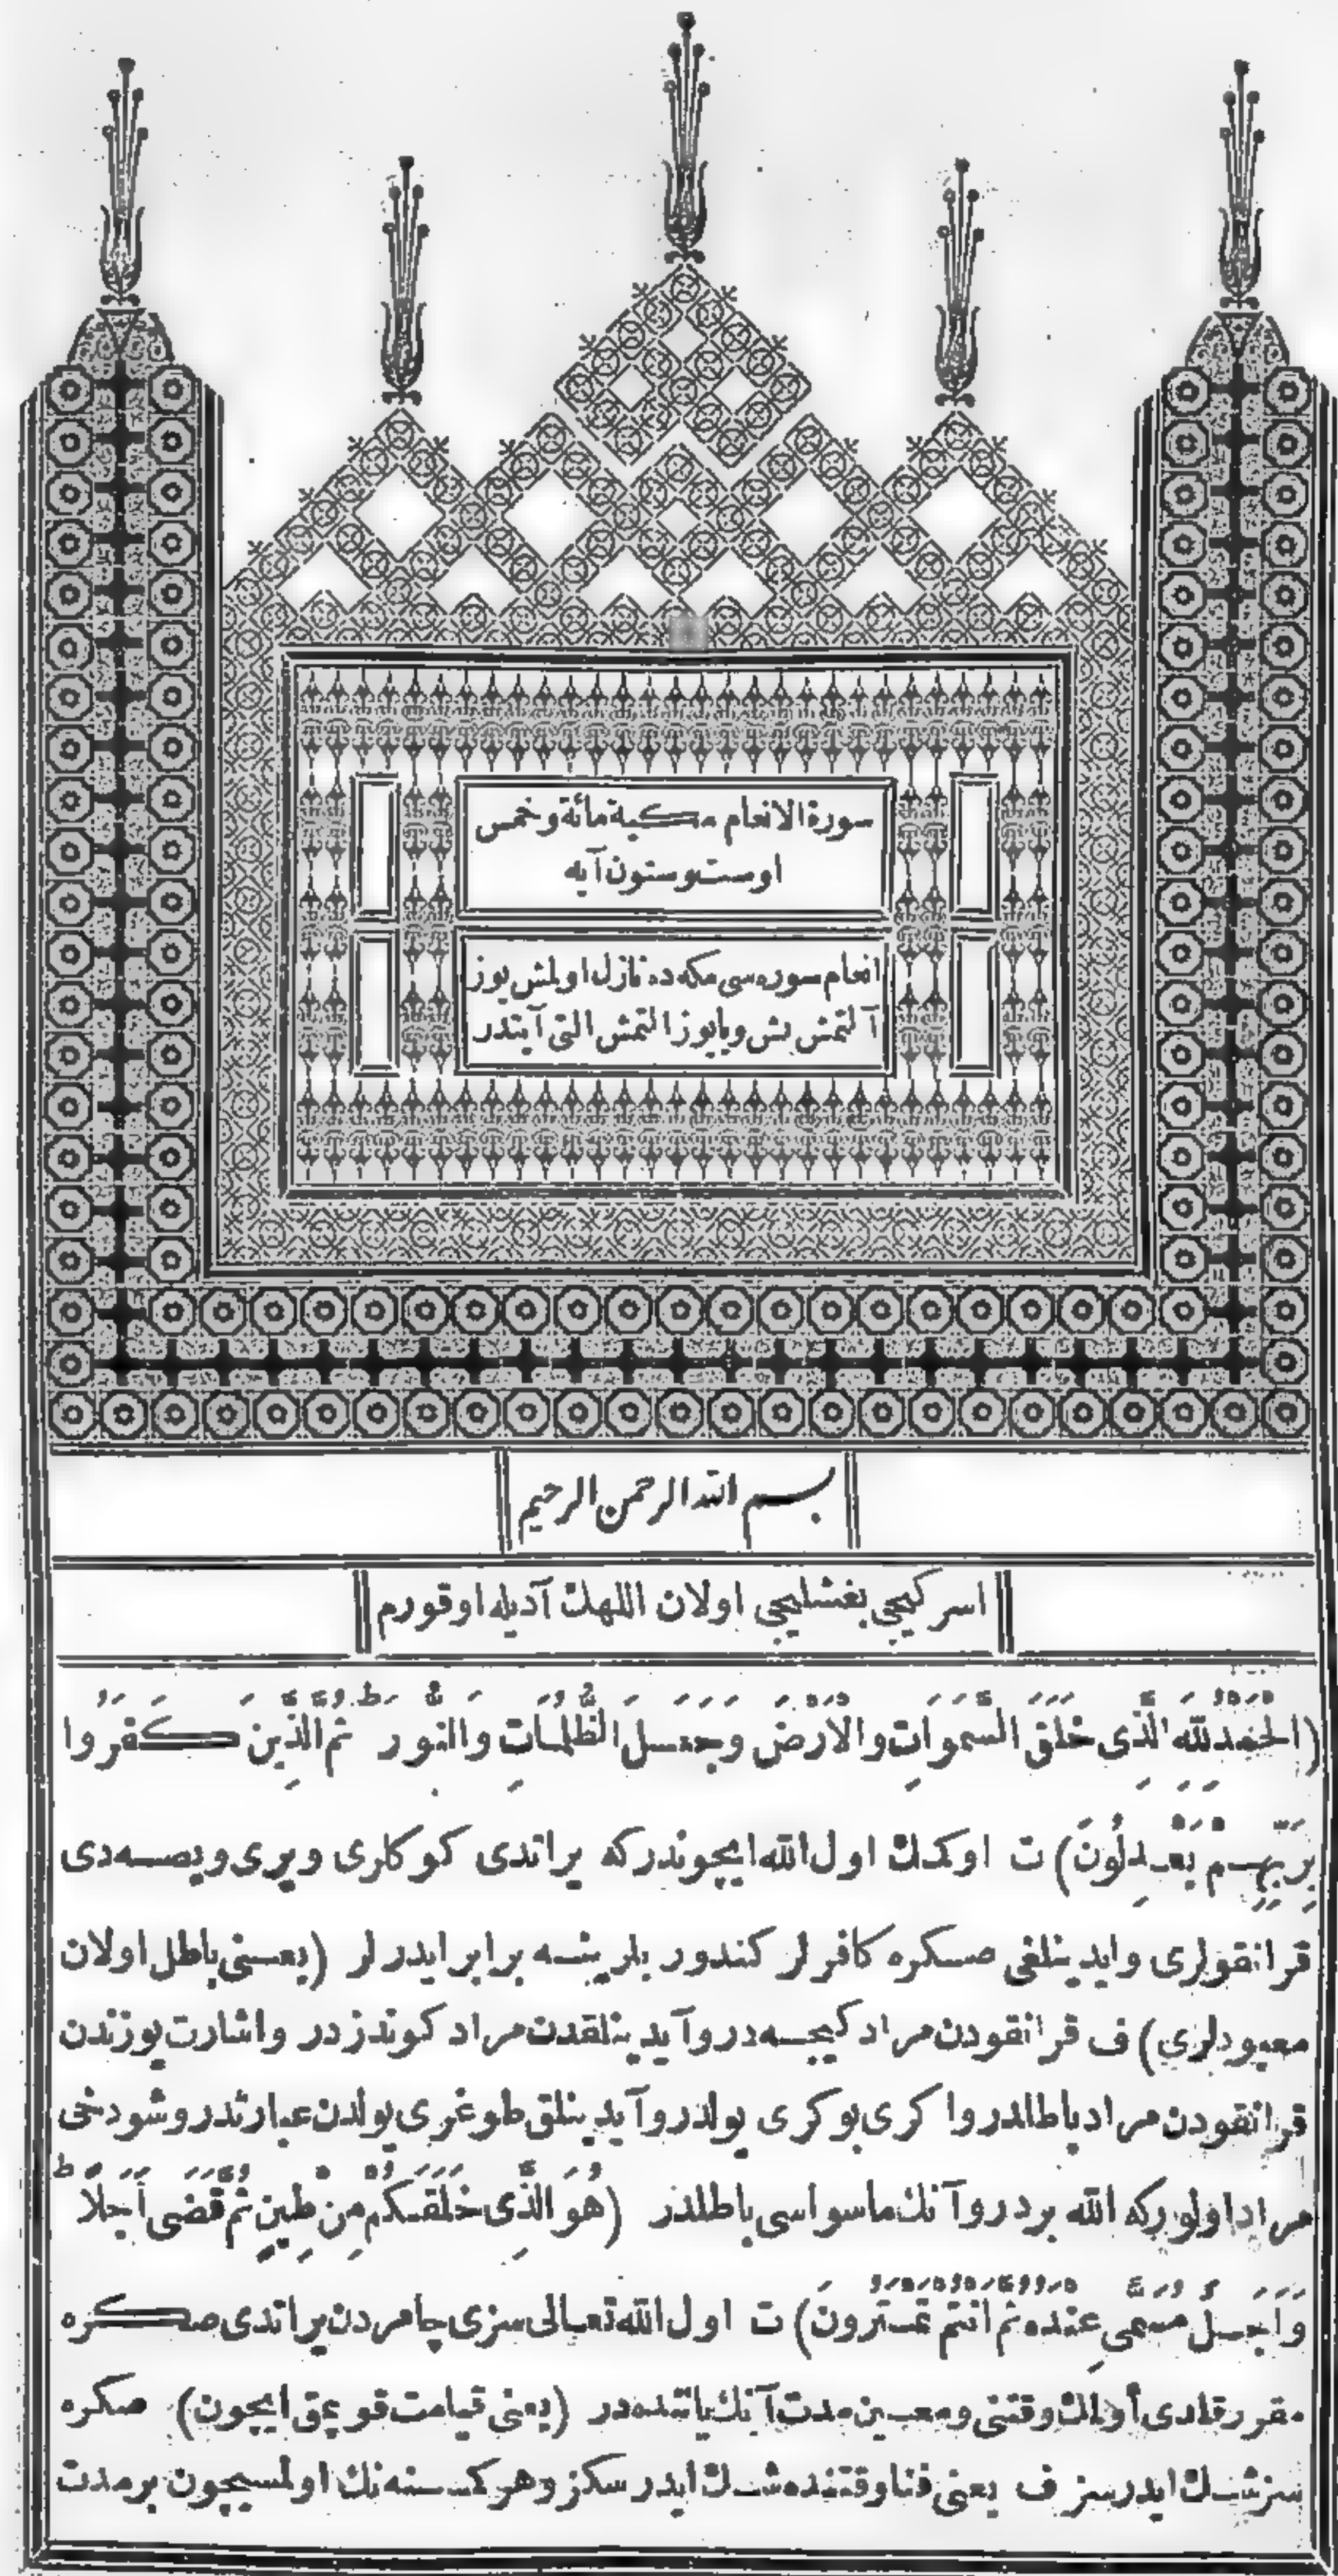 سورة الانعام مكية مائة وخمس
اوست وستون آيه
انعام سوره سى مكه ده نازل اولمش يوز
آلتمش بش ويا يوز التمش التى آيتدر
بسم الله الرحمن الرحيم
اسركيجى بغشليجى اولان اللهك آديله اوقورم
(اَلْحَمْدُ لِلّٰهِ الَّذِى خَلَقَ السَّمٰوَاتِ وَالْاَرْضَ وَجَعَلَ الظُّلُمَاتِ وَالنُّورَ ط ثُمَّ الَّذِينَ كَفَرُوا
بِرَبِّهِمْ يَعْدِلُونَ) ت اوكمك اول الله ايچوندركه يراتدى كوكلرى ويرى ويصه دى
قرانقولرى وايدينلغى صكره كافرلر كندور بلرينه برابر ايدرلر (يعنى باطل اولان
معبودلرى) ف قرانقودن مراد كيجه در وآيدينلقدن مراد كوندزدر واشارت يوزندن
قرانقودن مراد باطلدر وا كرى بوكرى يولدر وآيدينلق طوغرى يولدن عبارتدر وشودخى
مراد اولوركه الله بردر وآنك ماسواسى باطلدر (هُوَ الَّذِى خَلَقَكُمْ مِنْ طِينٍ ثُمَّ قَضَى اَجَلًا ط
وَاَجَلٌ مُسَمًّى عِنْدَهُ ثُمَّ اَنْتُمْ تَمْتَرُونَ) ت اول الله تعالى سزى چامردن يراتدى صكره
مقرر قلدى أولك وقتنى ومعين مدت آنك ياننده در (يعنى قيامت قوپمق ايچون) صكره
سزشك ايدرسز ف يعنى فنا وقتنده شك ايدرسكز وهر كسنه نك اولمسيچون برمدت